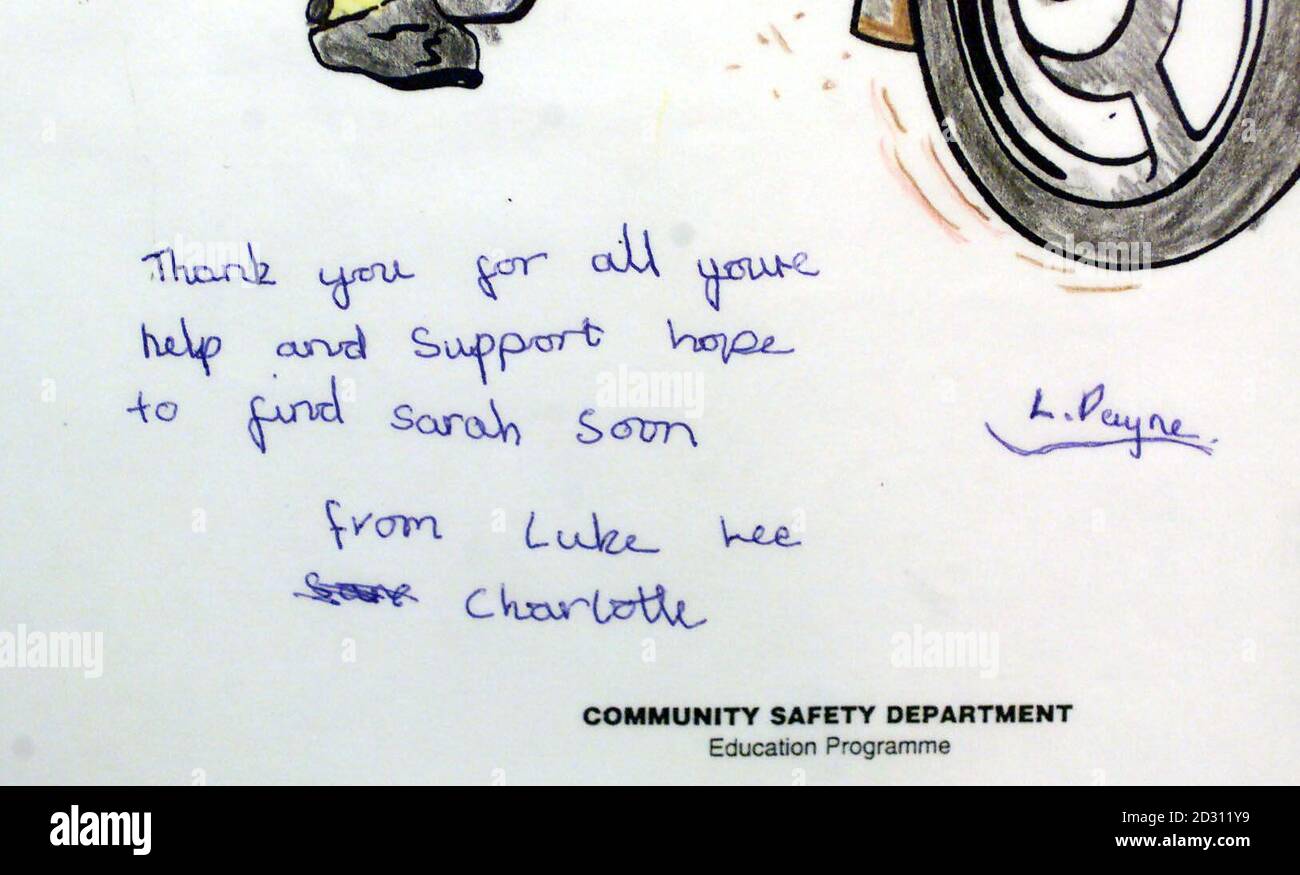 Thank you for all youre
help and Support hope
to find Sarah Soon
L. Payne.
from Luke Lee
Charlotte
COMMUNITY SAFETY DEPARTMENT
Education Programme
alamy
Image ID: 2D311Y9
www.alamy.com